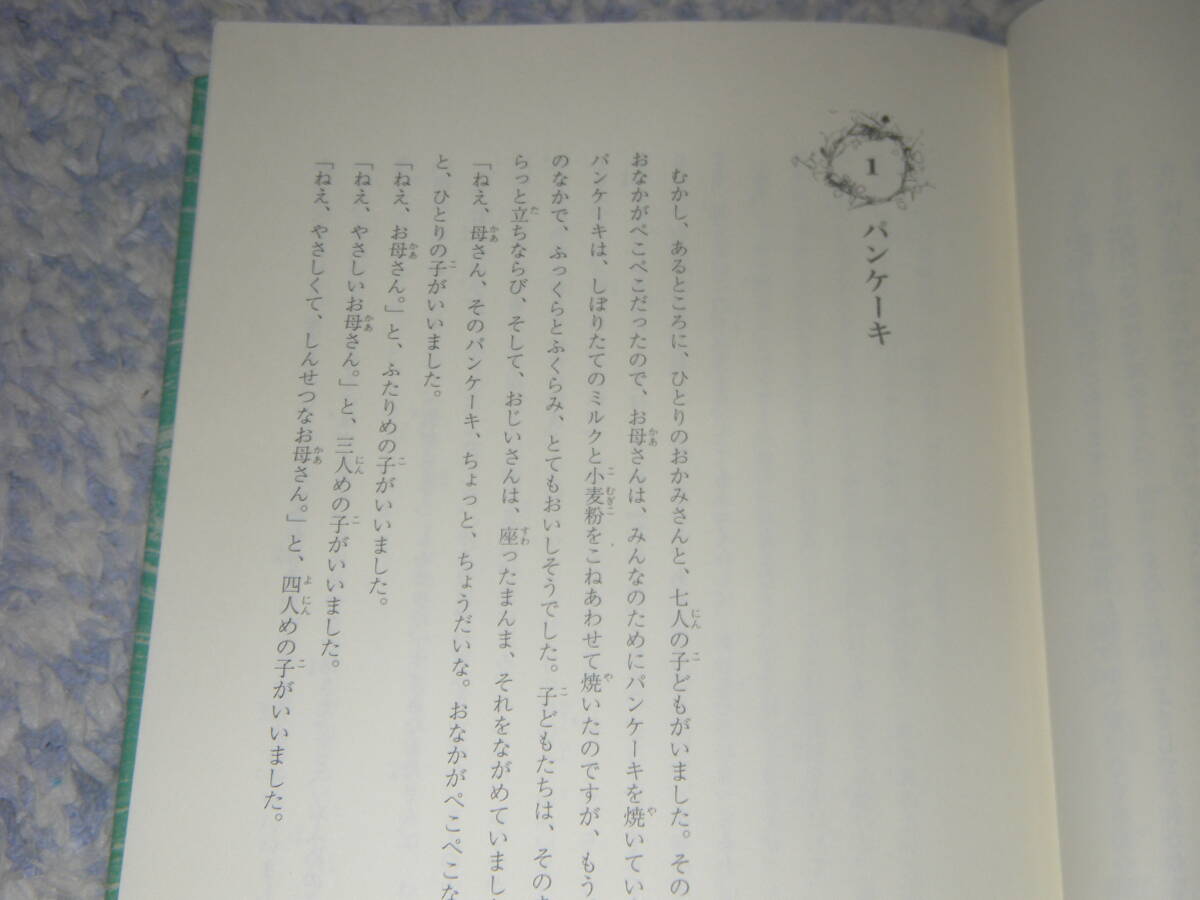 1
パンケーキ
むかし、あるところに、ひとりのおかみさんと、七人の子どもがいました。その
おなかがぺこぺこだったので、お母さんは、みんなのためにパンケーキを焼いてい
パンケーキは、しぼりたてのミルクと小麦粉をこねあわせて焼いたのですが、もう
のなかで、ふっくらとふくらみ、とてもおいしそうでした。子どもたちは、その
らっと立ちならび、そして、おじいさんは、座ったまんま、それをながめていまし
「ねえ、母さん、そのパンケーキ、ちょっと、ちょうだいな。おなかがぺこぺこな
と、ひとりの子がいいました。
「ねえ、お母さん。」と、ふたりめの子がいいました。
「ねえ、やさしいお母さん。」と、三人めの子がいいました。
「ねえ、やさしくて、しんせつなお母さん。」と、四人めの子がいいました。